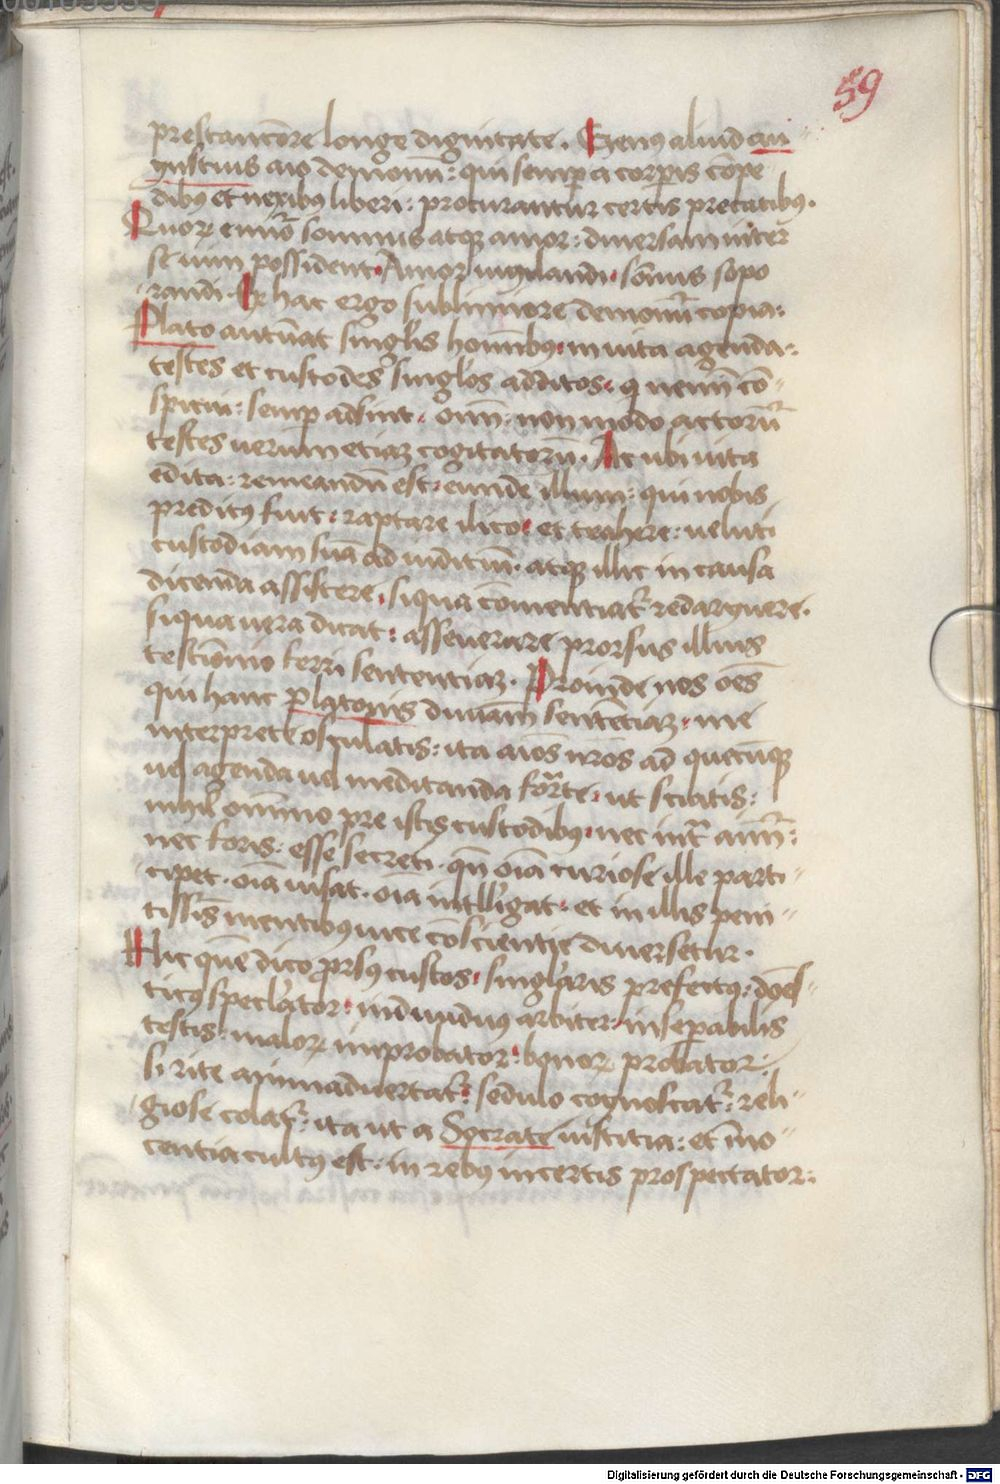 59
prestanciore longe dignitate. Genus aliud au
gustius aio demonum: qui semp a corporis compe
dibus et nexibus liberi: procurantur certis precatibus.
Quorum e numero somnus atque amor: diversam inter
se uim possident. Amor uigilandi. somnus sopo
randi. Ex hac ergo sublimiore demonum copia:
Plato autumat singulis hominibus in uita agenda:
testes et custodes singulos additos. qui nemini con
spicui: semp adsint. omnium non modo actorum
testes uerum etiam cogitatorum. At ubi uita
edita: remeandum est. eundem illum: qui nobis
preditus fuit: raptare ilico. et trahere: ueluti
custodiam suam ad iuditium. atque illic in causa
dicenda assistere, siqua comentiatur redarguere.
siqua uera dicat: asseuerare prorsus illius
testimonio ferri sententiam. Proinde nos omnes
qui hanc platonis diuinam sententiam. me
interprete osculatis: ita animos uros ad quecunque
uel agenda uel meditanda formate. ut sciatis:
nihil omnino pre istis custodibus. nec intra animum:
nec foris: esse secreti. quin omnia curiose ille parti
cipet. omnia uisat. omnia intelligat. et in illis peni
tissimis mentibus uice conscientie diuersetur.
Hic quem dico prorsus custos. singularis prefectus. domes
ticus speculator. indiuiduus arbiter. inseparabilis
testis: malorum improbator: bonorum probator:
si rite animaduertatur: sedulo cognoscatur: reli
giose colatur: ita ut a Socrate iustitia: et inno
centia cultus est: in rebus incertis prospectator:
Digitalisierung gefördert durch die Deutsche Forschungsgemeinschaft - DFG